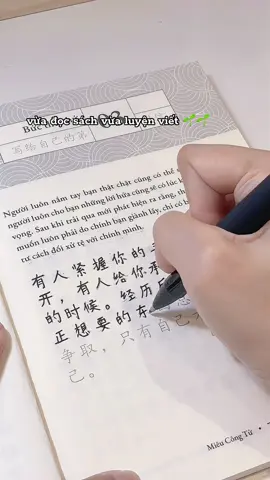 vừa đọc sách vừa luyện viết
Bức th
写给自己的第
Người luôn nắm tay bạn thật chặt cũng có thể
người luôn cho bạn những lời hứa cũng sẽ có lúc k
vọng. Sau khi trải qua mới phát hiện ra rằng, th
muốn luôn phải do chính bạn giành lấy, chỉ có b
tư cách đối xử tệ với chính mình.
有人紧握你的
开，有人给你承
的时候。经历
正想要的东
争取，只有自己
己。
Miêu Công Tử